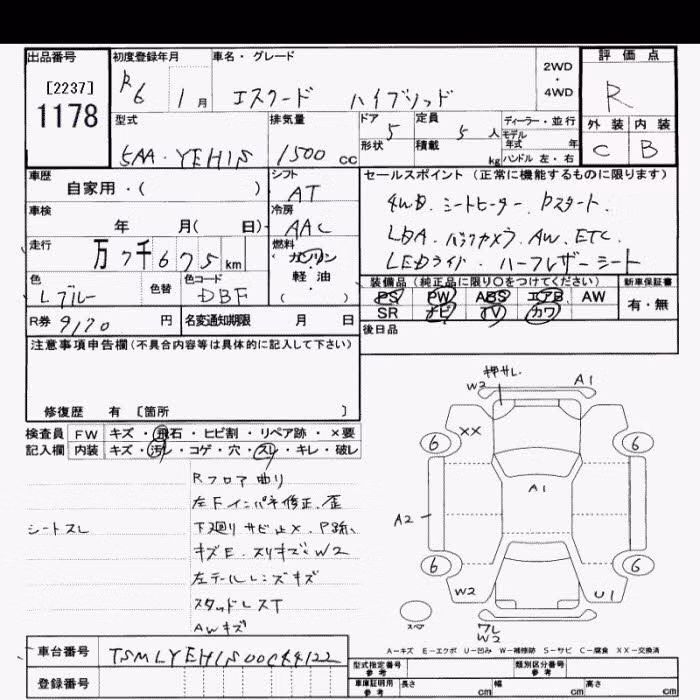 出品番号 初度登録年月 車名・グレード 評価点
[2237]
1178
R6 1月 エスクード ハイブリッド 2WD・4WD R
型式 排気量 ドア 定員 ディーラー・並行 外装 内装
5AA-YEH1S 1500cc 5 5人 モデル年式 年 C B
形状 積載 kg ハンドル 左・右
車歴 シフト セールスポイント(正常に機能するものに限ります)
自家用・( ) AT 4WD. シートヒーター. Pスタート.
車検 冷房
年 月( 日) AAC LDA. バックカメラ. AW. ETC.
走行 燃料
万7千675km ガソリン LEDライト. ハーフレザーシート
軽・油
( )
色 色替 色コード 装備品(純正品に限り〇をつけてください) 新車保証書
Lブルー DBF PS PW ABS エアB AW 有・無
R券 9170円 名変通知期限 月 日 SR ナビ TV カワ
注意事項申告欄(不具合内容等は具体的に記入して下さい) 後日品
修復歴 有 [箇所 ]
検査員 FW キズ・飛石・ヒビ割・リペア跡・×要
記入欄 内装 キズ・汚レ・コゲ・穴・スレ・キレ・破レ
Rフロア曲り
左Fインパネ修正、歪
シートスレ 下廻りサビ止×、P跡、
キズE、スリキズ、W2
左テールレンズキズ
スタッドレスT
AWキズ
押サレ
W2 A1
XX
6 6
A1
A2
6 6
W2 U1
スペア
ワレ
W2
A-キズ E-エクボ U-凹み W-補修跡 S-サビ C-腐食 XX-交換済
車台番号 TSMLYEH1S00
登録番号
型式指定番号 参考 類別区分番号 参考
車庫証明用 参考 長さ cm 幅 cm 高さ cm